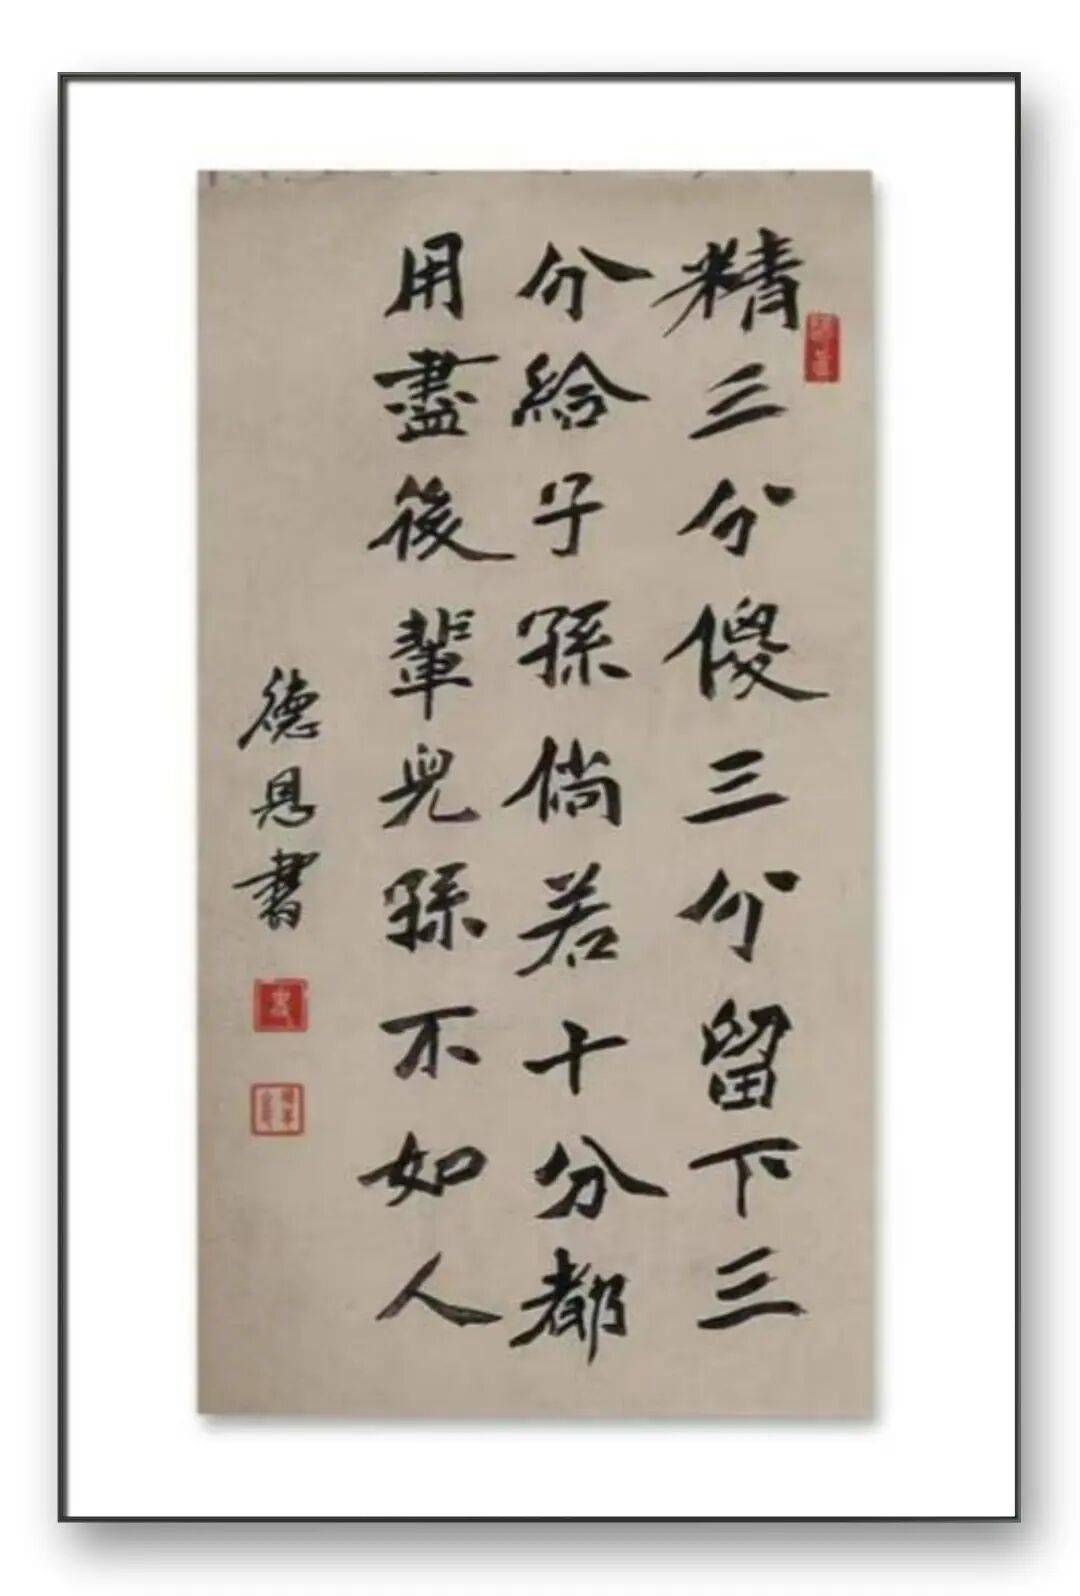 精三分傻三分留下三
分給子孫倘若十分都
用盡後輩兒孫不如人
德恩書